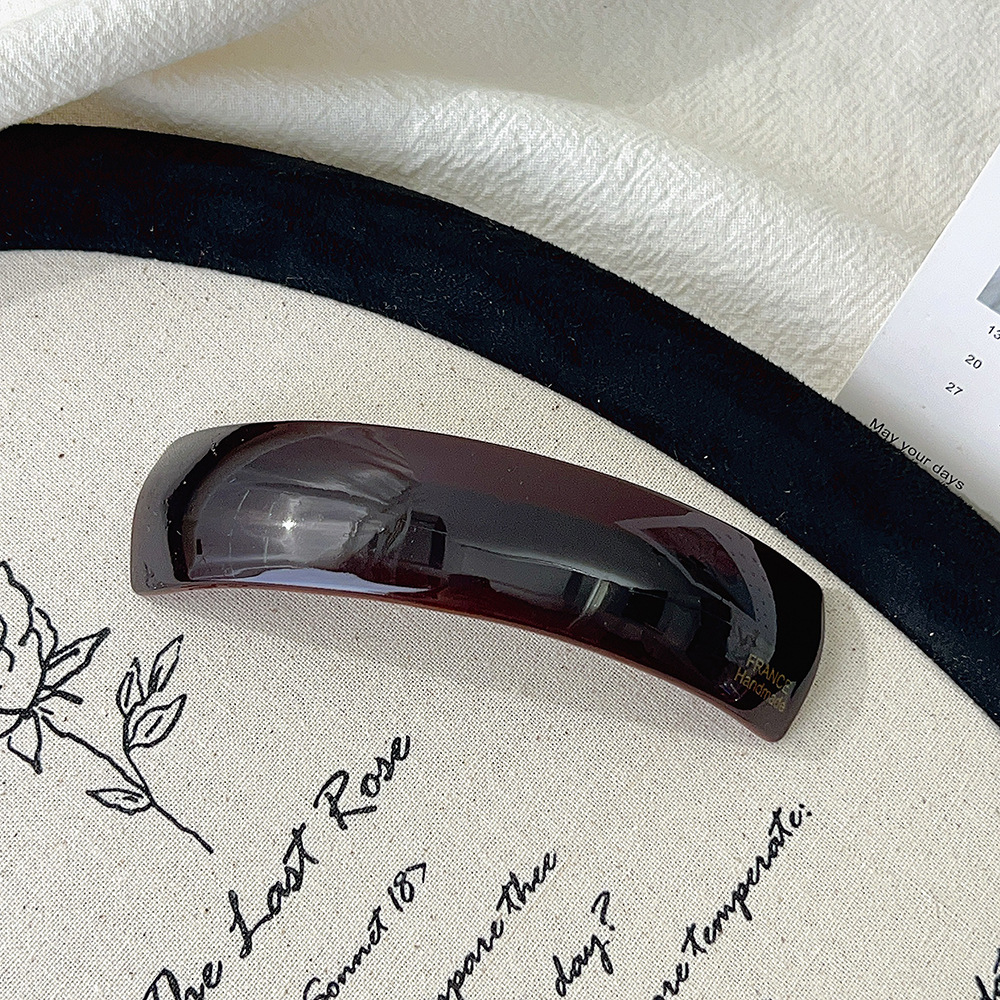 13
20
27
May your days
FRANCE
Handmade
The Last Rose
Sonnet 18>
day?
temperate: